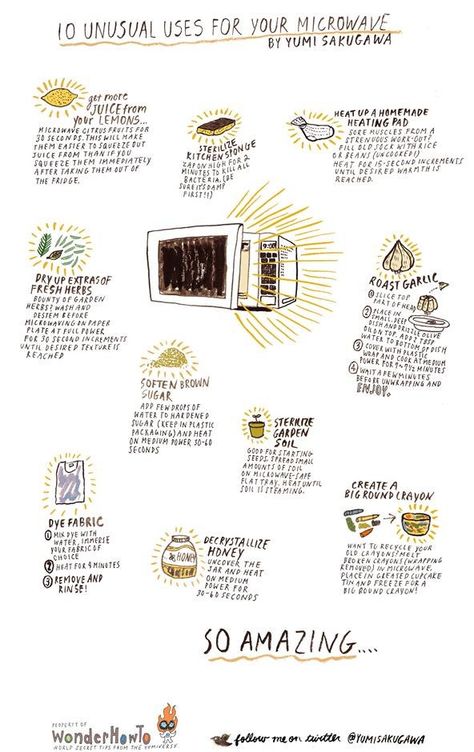 10 UNUSUAL USES FOR YOUR MICROWAVE
BY YUMI SAKUGAWA
get more
JUICE from
your LEMONS...
MICROWAVE CITRUS FRUITS FOR
30 SECONDS. THIS WILL MAKE
THEM EASIER TO SQUEEZE OUT
JUICE FROM THAN IF YOU
SQUEEZE THEM IMMEDIATELY
AFTER TAKING THEM OUT OF
THE FRIDGE.
STERILIZE
KITCHEN SPONGE
ZAP ON HIGH FOR 2
MINUTES TO KILL ALL
BACTERIA. (BE
SURE IT'S DAMP
FIRST!!)
HEAT UP A HOMEMADE
HEATING PAD
SORE MUSCLES FROM A
STRENUOUS WORK-OUT?
FILL OLD SOCK WITH RICE
OR BEANS (UNCOOKED!)
HEAT FOR 15-SECOND INCREMENTS
UNTIL DESIRED WARMTH IS
REACHED.
DRY UP EXTRAS OF
FRESH HERBS
BOUNTY OF GARDEN
HERBS? WASH AND
DESTEM BEFORE
MICROWAVING ON PAPER
PLATE AT FULL POWER
FOR 30 SECOND INCREMENTS
UNTIL DESIRED TEXTURE IS
REACHED
ROAST GARLIC
1 SLICE TOP
PART OF HEAD
2 PLACE IN
SMALL, DEEP
DISH AND DRIZZLE OLIVE
OIL ON TOP. ADD 2 TBSP
WATER TO BOTTOM OF DISH
3 COVER WITH PLASTIC
WRAP AND COOK AT MEDIUM
POWER FOR 7-7½ MINUTES
4 WAIT A FEW MINUTES
BEFORE UNWRAPPING AND
ENJOY.
SOFTEN BROWN
SUGAR
ADD FEW DROPS OF
WATER TO HARDENED
SUGAR (KEEP IN PLASTIC
PACKAGING) AND HEAT
ON MEDIUM POWER 30-60
SECONDS
STERILIZE
GARDEN
SOIL
GOOD FOR STARTING
SEEDS. SPREAD SMALL
AMOUNTS OF SOIL
ON MICROWAVE-SAFE
FLAT TRAY. HEAT UNTIL
SOIL IS STEAMING.
DYE FABRIC
1 MIX DYE WITH
WATER, IMMERSE
YOUR FABRIC OF
CHOICE
2 HEAT FOR 4 MINUTES
3 REMOVE AND
RINSE!
HONEY
DECRYSTALLIZE
HONEY
UNCOVER THE
JAR AND HEAT
ON MEDIUM
POWER FOR
30-60 SECONDS
CREATE A
BIG ROUND CRAYON
WANT TO RECYCLE YOUR
OLD CRAYONS? MELT
BROKEN CRAYONS (WRAPPING
REMOVED) IN MICROWAVE.
PLACE IN GREASED CUPCAKE
TIN AND FREEZE FOR A
BIG ROUND CRAYON!
SO AMAZING....
PROPERTY OF
WonderHowTo
WORLD SECRET TIPS FROM THE YUMIVERSE
follow me on twitter @YUMISAKUGAWA